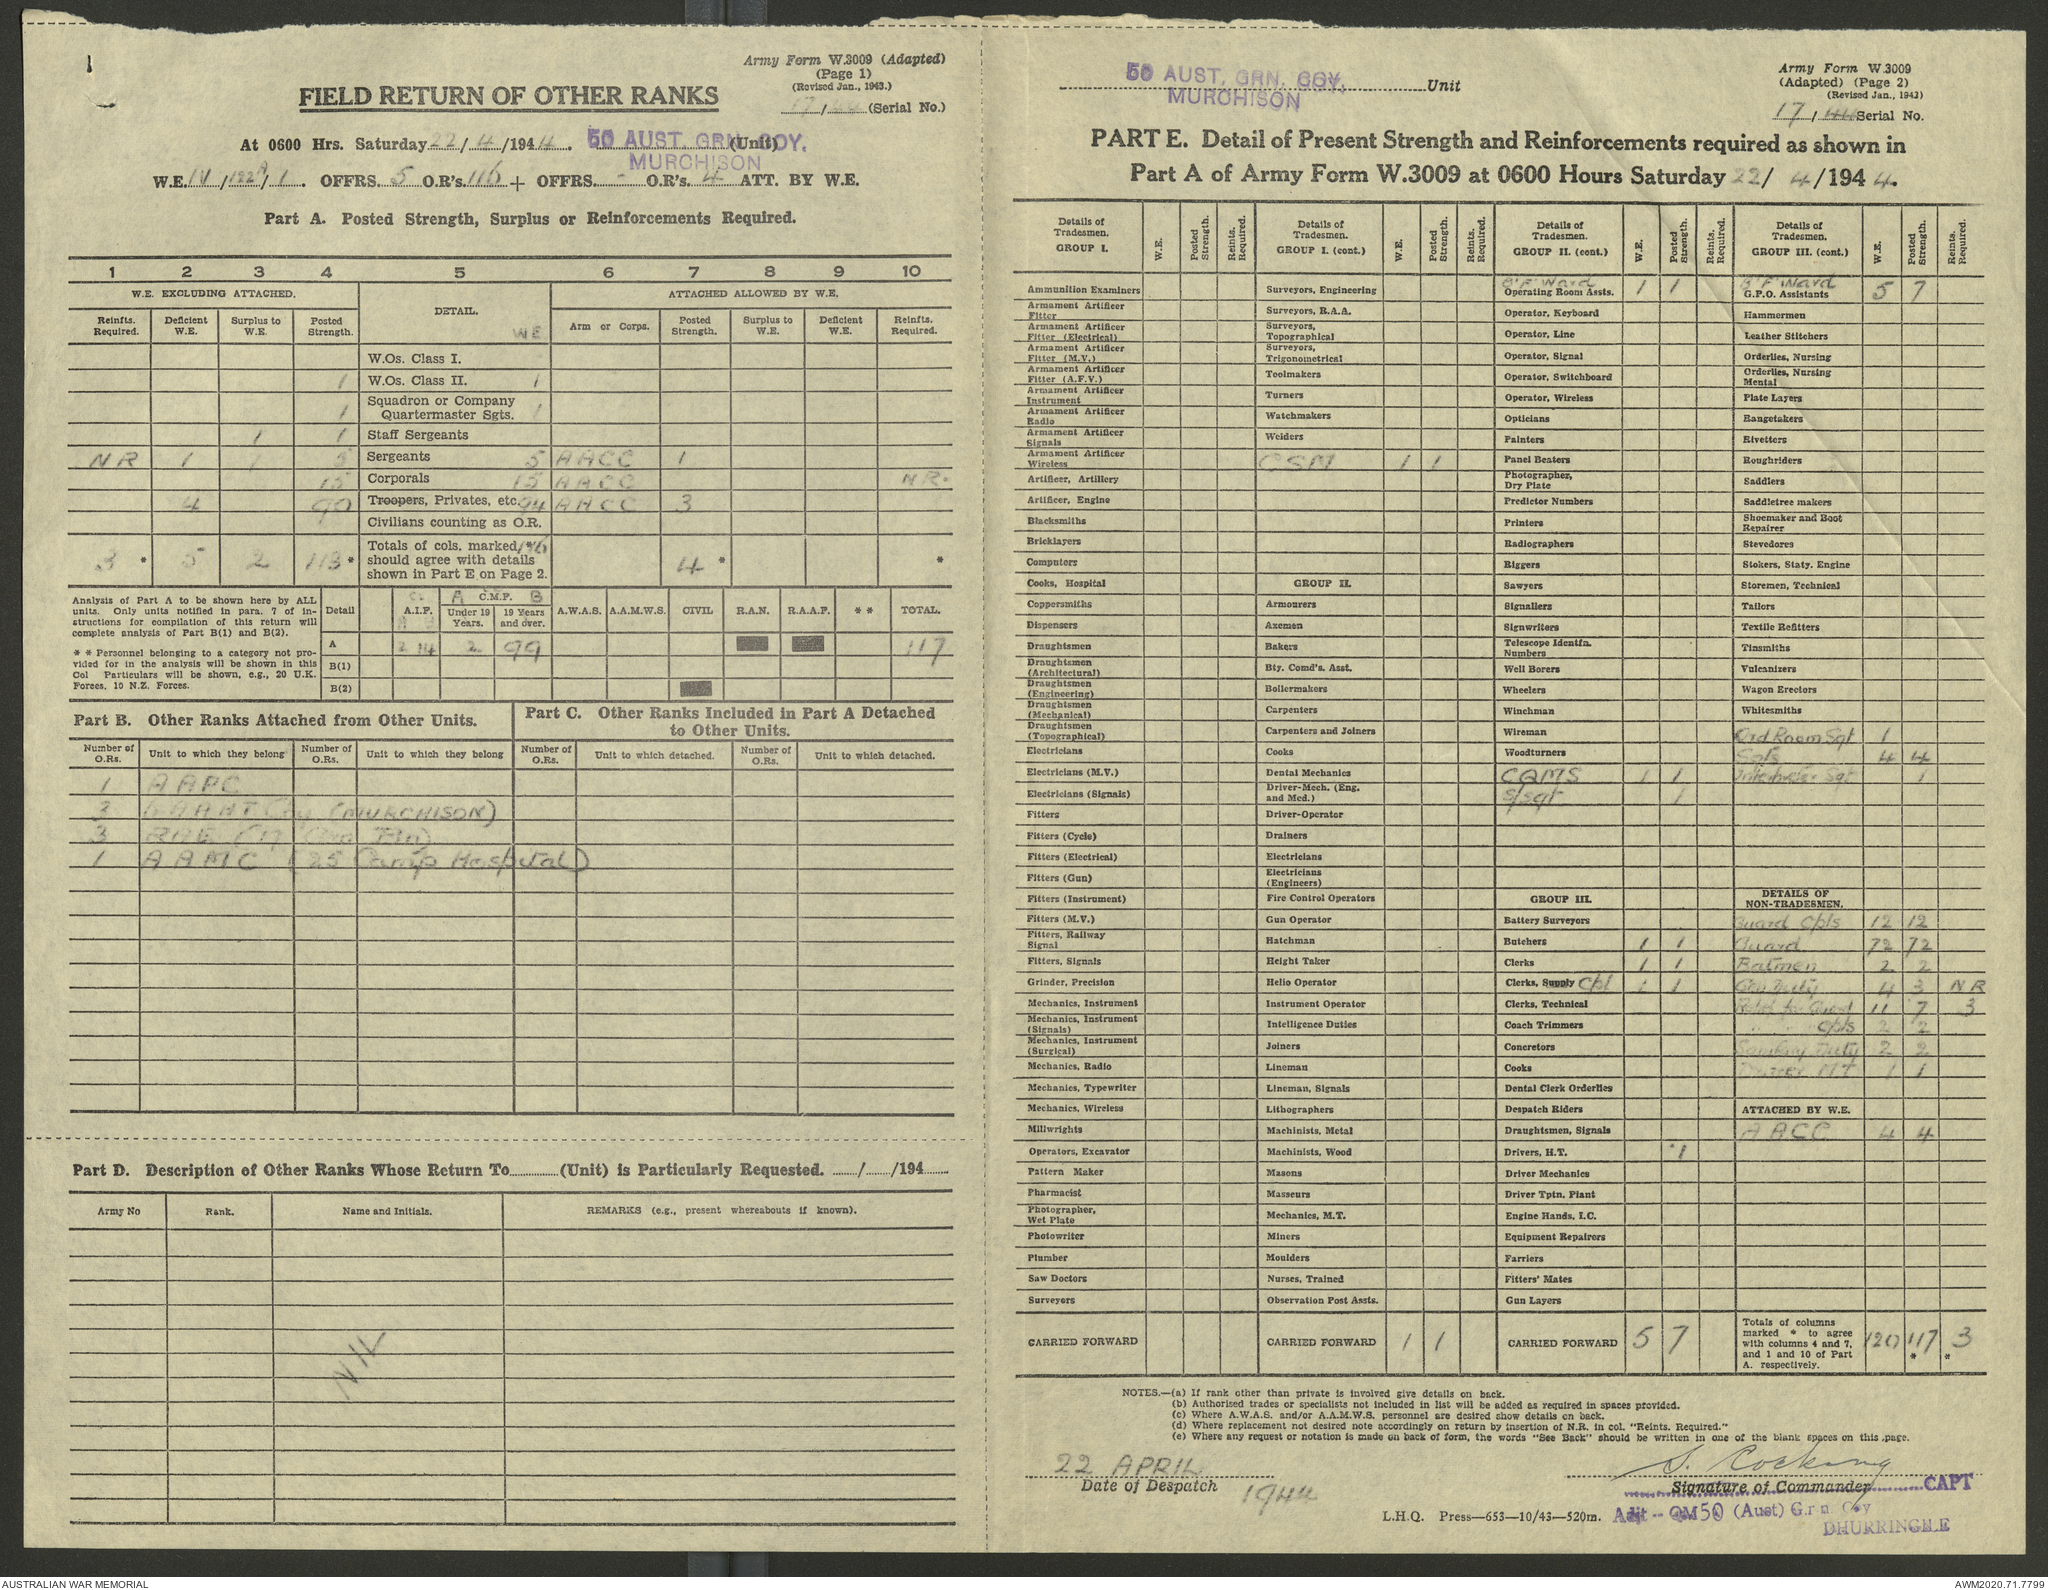 1
Army Form W.3009 (Adapted)
(Page 1)
(Revised Jan., 1943.)
17/44 (Serial No.)
FIELD RETURN OF OTHER RANKS
At 0600 Hrs. Saturday 22/4/1944. 50 AUST. GRN. COY. (Unit)
MURCHISON
W.E. IV/122A/1. OFFRS. 5 O.R's. 116 + OFFRS. - O.R's. 4 ATT. BY W.E.
Part A. Posted Strength, Surplus or Reinforcements Required.
1 2 3 4 5 6 7 8 9 10
W.E. EXCLUDING ATTACHED. DETAIL. ATTACHED ALLOWED BY W.E.
Reinfts. Required. Deficient W.E. Surplus to W.E. Posted Strength. WE Arm or Corps. Posted Strength. Surplus to W.E. Deficient W.E. Reinfts. Required.
W.Os. Class I.
1 W.Os. Class II. 1
1 Squadron or Company Quartermaster Sgts. 1
1 1 Staff Sergeants
NR 1 1 5 Sergeants 5 AACC 1
15 Corporals 15 AACC NR.
4 90 Troopers, Privates, etc. 94 AACC 3
Civilians counting as O.R.
3 * 5 2 113 * Totals of cols. marked * 116 should agree with details shown in Part E on Page 2. 4 * *
Analysis of Part A to be shown here by ALL units. Only units notified in para. 7 of instructions for compilation of this return will complete analysis of Part B(1) and B(2).
* * Personnel belonging to a category not provided for in the analysis will be shown in this Col Particulars will be shown, e.g., 20 U.K. Forces, 10 N.Z. Forces.
Detail A.I.F. A C.M.F. B Under 19 Years. 19 Years and over. A.W.A.S. A.A.M.W.S. CIVIL R.A.N. R.A.A.F. * * TOTAL.
A 2 14 2 99 117
B(1)
B(2)
Part B. Other Ranks Attached from Other Units.
Part C. Other Ranks Included in Part A Detached to Other Units.
Number of O.Rs. Unit to which they belong Number of O.Rs. Unit to which they belong Number of O.Rs. Unit to which detached. Number of O.Rs. Unit to which detached.
1 AAPC
3 Coy (MURCHISON)
3
1 AAMC (25 Camp Hospital)
Part D. Description of Other Ranks Whose Return To (Unit) is Particularly Requested. / /194
Army No Rank. Name and Initials. REMARKS (e.g., present whereabouts if known).
NIL
50 AUST. GRN. COY. Unit
MURCHISON
Army Form W.3009
(Adapted) (Page 2)
(Revised Jan., 1943)
17/44 Serial No.
PART E. Detail of Present Strength and Reinforcements required as shown in
Part A of Army Form W.3009 at 0600 Hours Saturday 22/4/1944.
Details of Tradesmen. GROUP I. W.E. Posted Strength. Reints. Required.
Ammunition Examiners
Armament Artificer Fitter
Armament Artificer Fitter (Electrical)
Armament Artificer Fitter (M.V.)
Armament Artificer Fitter (A.F.V.)
Armament Artificer Instrument
Armament Artificer Radio
Armament Artificer Signals
Armament Artificer Wireless
Artificer, Artillery
Artificer, Engine
Blacksmiths
Bricklayers
Computers
Cooks, Hospital
Coppersmiths
Dispensers
Draughtsmen
Draughtsmen (Architectural)
Draughtsmen (Engineering)
Draughtsmen (Mechanical)
Draughtsmen (Topographical)
Electricians
Electricians (M.V.)
Electricians (Signals)
Fitters
Fitters (Cycle)
Fitters (Electrical)
Fitters (Gun)
Fitters (Instrument)
Fitters (M.V.)
Fitters, Railway Signal
Fitters, Signals
Grinder, Precision
Mechanics, Instrument
Mechanics, Instrument (Signals)
Mechanics, Instrument (Surgical)
Mechanics, Radio
Mechanics, Typewriter
Mechanics, Wireless
Millwrights
Operators, Excavator
Pattern Maker
Pharmacist
Photographer, Wet Plate
Photowriter
Plumber
Saw Doctors
Surveyors
CARRIED FORWARD
Details of Tradesmen. GROUP I. (cont.) W.E. Posted Strength. Reints. Required.
Surveyors, Engineering
Surveyors, R.A.A.
Surveyors, Topographical
Surveyors, Trigonometrical
Toolmakers
Turners
Watchmakers
Welders
CSM 1 1
GROUP II.
Armourers
Axemen
Bakers
Bty. Comd's. Asst.
Boilermakers
Carpenters
Carpenters and Joiners
Cooks
Dental Mechanics
Driver-Mech. (Eng. and Med.)
Driver-Operator
Drainers
Electricians
Electricians (Engineers)
Fire Control Operators
Gun Operator
Hatchman
Height Taker
Helio Operator
Instrument Operator
Intelligence Duties
Joiners
Lineman
Lineman, Signals
Lithographers
Machinists, Metal
Machinists, Wood
Masons
Masseurs
Mechanics, M.T.
Miners
Moulders
Nurses, Trained
Observation Post Assts.
CARRIED FORWARD 1 1
Details of Tradesmen. GROUP II. (cont.) W.E. Posted Strength. Reints. Required.
B'F'Ward 1 1
Operating Room Assts.
Operator, Keyboard
Operator, Line
Operator, Signal
Operator, Switchboard
Operator, Wireless
Opticians
Painters
Panel Beaters
Photographer, Dry Plate
Predictor Numbers
Printers
Radiographers
Riggers
Sawyers
Signallers
Signwriters
Telescope Identfn. Numbers
Well Borers
Wheelers
Winchman
Wireman
Woodturners
CQMS 1 1
S/Sgt 1
GROUP III.
Battery Surveyors
Butchers 1 1
Clerks 1 1
Clerks, Supply Cpl 1 1
Clerks, Technical
Coach Trimmers
Concretors
Cooks
Dental Clerk Orderlies
Despatch Riders
Draughtsmen, Signals
Drivers, H.T. 1
Driver Mechanics
Driver Tptn. Plant
Engine Hands, I.C.
Equipment Repairers
Farriers
Fitters' Mates
Gun Layers
CARRIED FORWARD 5 7
Details of Tradesmen. GROUP III. (cont.) W.E. Posted Strength. Reints. Required.
B'F'Ward 5 7
G.P.O. Assistants
Hammermen
Leather Stitchers
Orderlies, Nursing
Orderlies, Nursing Mental
Plate Layers
Rangetakers
Rivetters
Roughriders
Saddlers
Saddletree makers
Shoemaker and Boot Repairer
Stevedores
Stokers, Staty. Engine
Storemen, Technical
Tailors
Textile Refitters
Tinsmiths
Vulcanizers
Wagon Erectors
Whitesmiths
Ord Room Sgt 1
Sgts 4 4
Sgt 1
DETAILS OF NON-TRADESMEN.
Guard Cpls 12 12
Guard 72 72
Batmen 2 2
Gen Duty 4 3 NR
Relief for Guard 11 7 3
Cpls 2 2
Sanitary Duty 2 2
Driver MT 1 1
ATTACHED BY W.E.
AACC 4 4
Totals of columns marked * to agree with columns 4 and 7, and 1 and 10 of Part A. respectively. 120 117 * 3 *
NOTES.—(a) If rank other than private is involved give details on back.
(b) Authorised trades or specialists not included in list will be added as required in spaces provided.
(c) Where A.W.A.S. and/or A.A.M.W.S. personnel are desired show details on back.
(d) Where replacement not desired note accordingly on return by insertion of N.R. in col. "Reints. Required."
(e) Where any request or notation is made on back of form, the words "See Back" should be written in one of the blank spaces on this page.
22 APRIL S. Cocking
Date of Despatch 1944 Signature of Commander CAPT
L.H.Q. Press—653—10/43—520m. Adjt - QM 50 (Aust) Grn Coy
DHURRINGILE
AUSTRALIAN WAR MEMORIAL AWM2020.71.7799